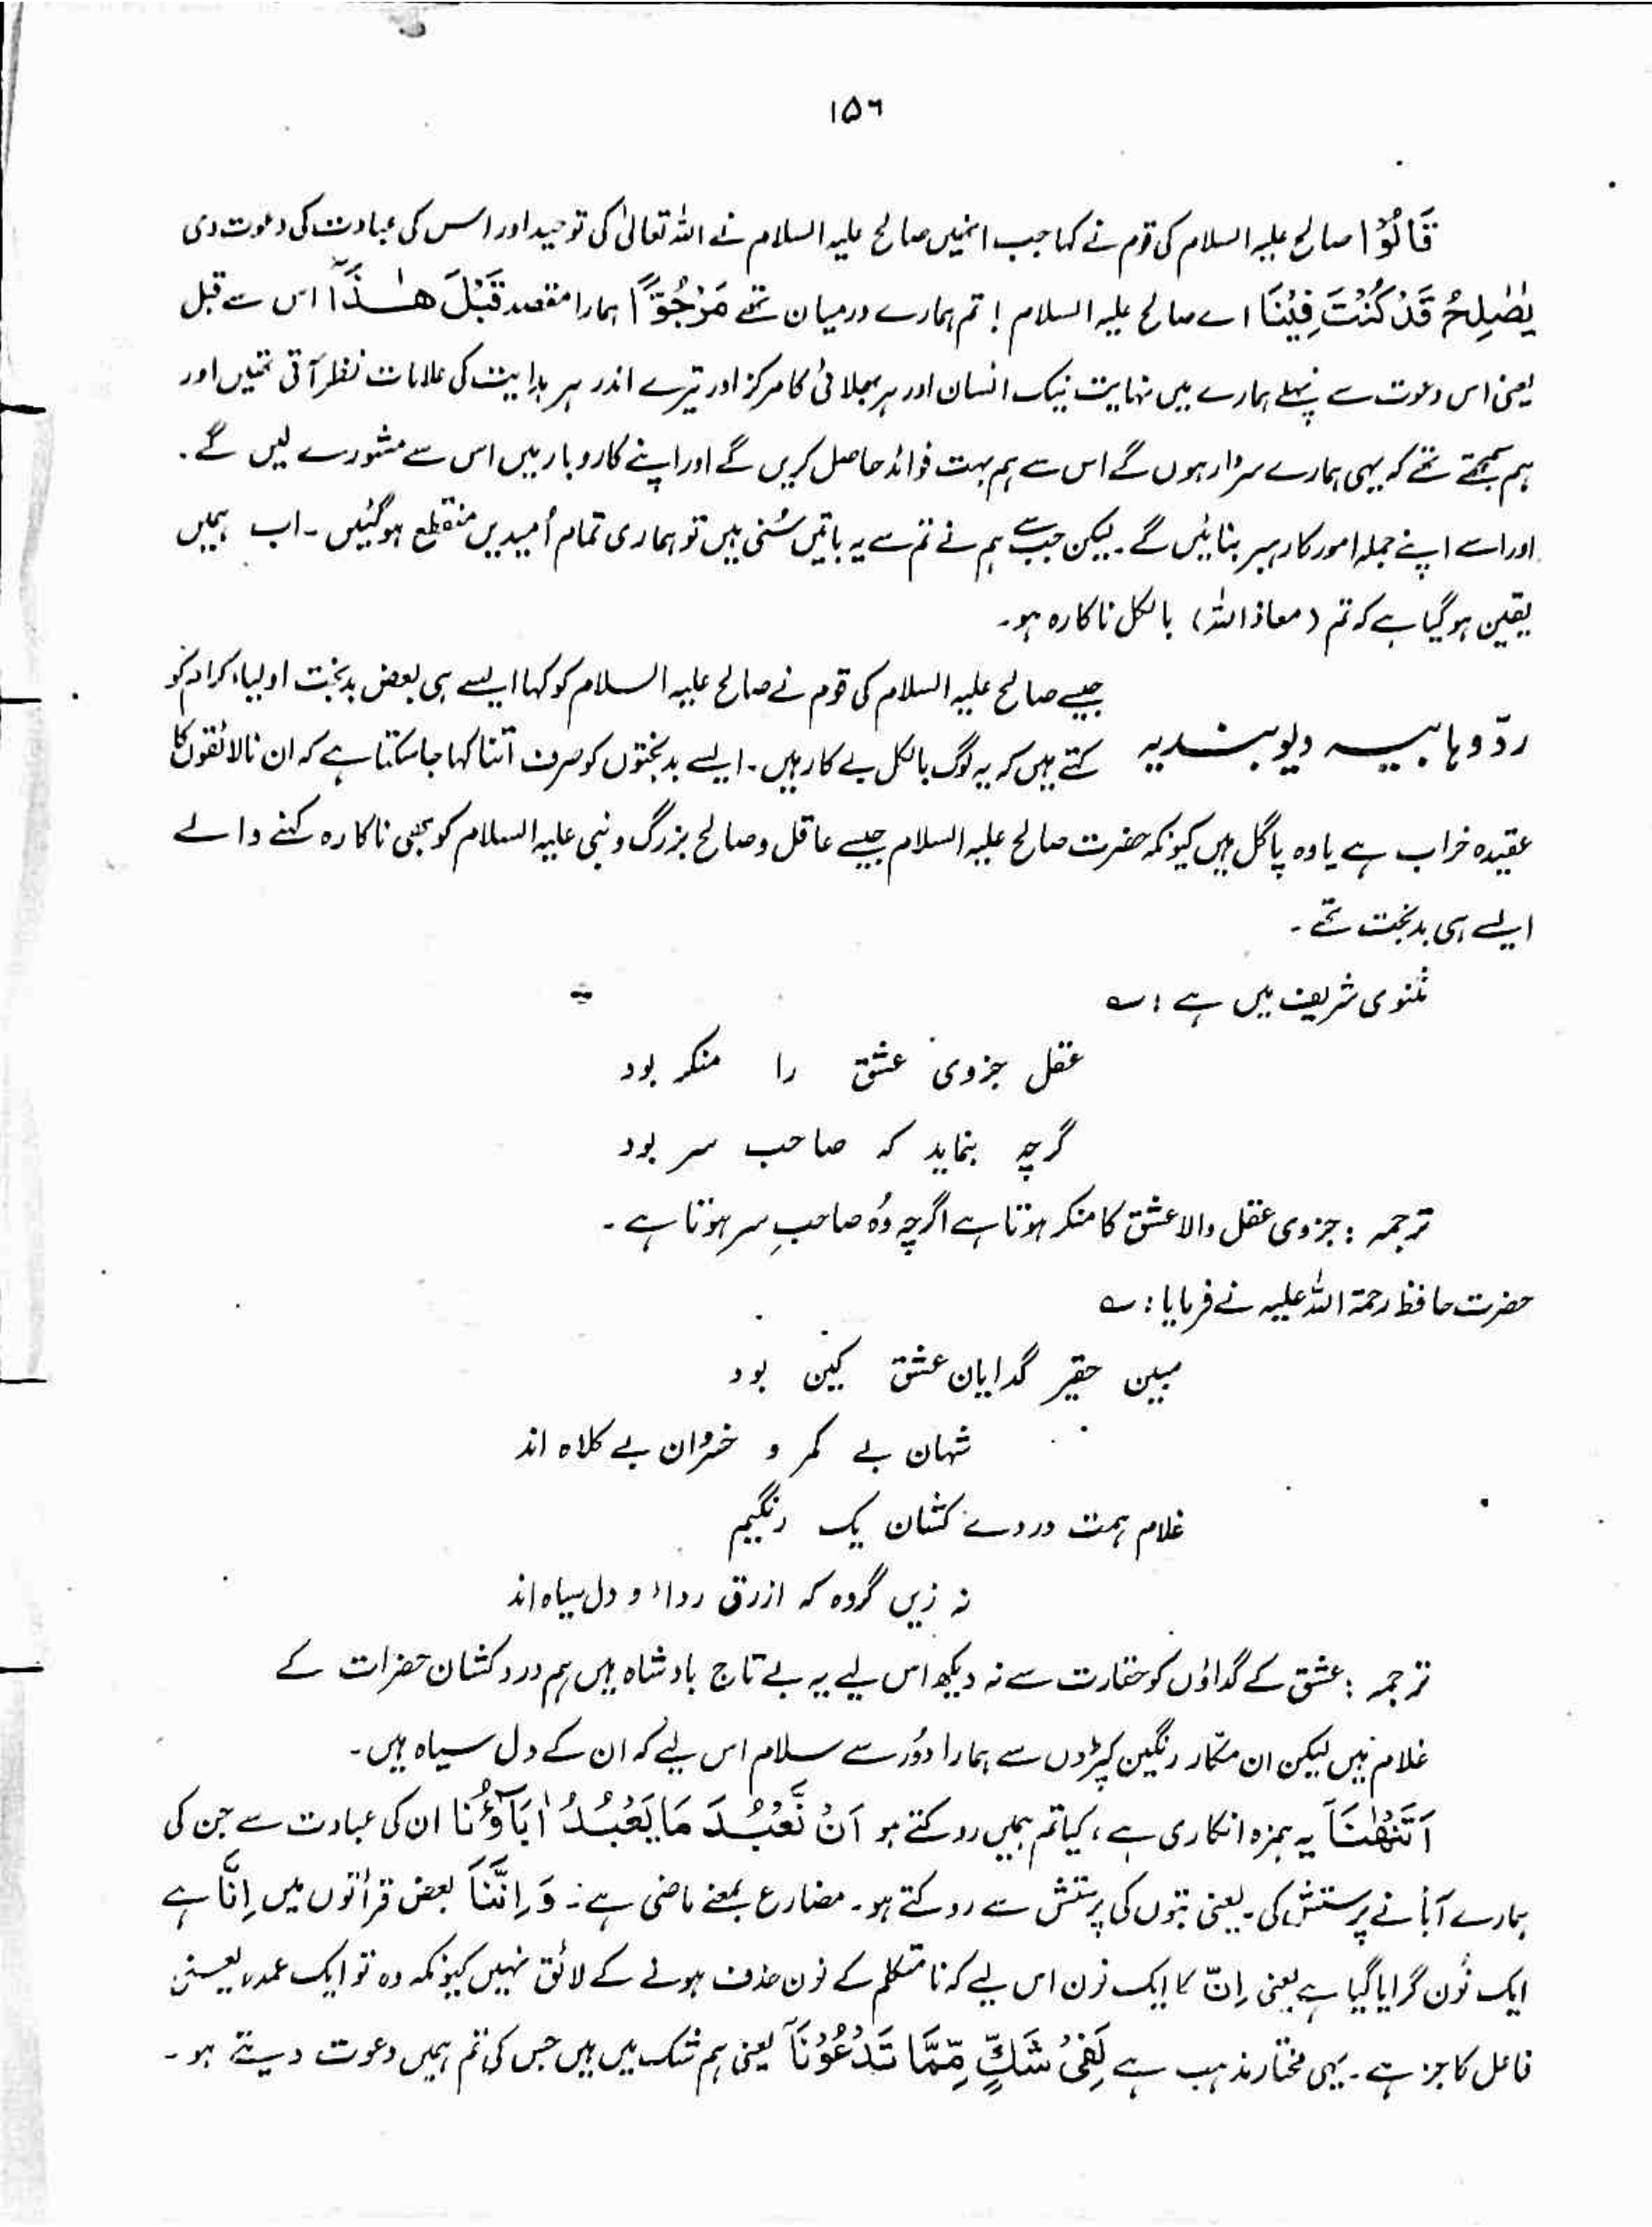 ۱۵۶
قَالُوْا صالح علیہ السلام کی قوم نے کہا جب انہیں صالح علیہ السلام نے اللہ تعالیٰ کی توحید اور اس کی عبادت کی دعوت دی
یٰصٰلِحُ قَدْ کُنْتَ فِیْنَا اے صالح علیہ السلام ! تم ہمارے درمیان تھے مَرْجُوًّا ہمارا مقصد قَبْلَ ھٰذَآ اس سے قبل
یعنی اس دعوت سے پہلے ہمارے میں نہایت نیک انسان اور ہر بھلائی کا مرکز اور تیرے اندر ہر ہدایت کی علامات نظر آتی تھیں اور
ہم سمجھتے تھے کہ یہی ہمارے سردار ہوں گے اس سے ہم بہت فوائد حاصل کریں گے اور اپنے کاروبار میں اس سے مشورے لیں گے ۔
اور اسے اپنے جملہ امور کا رہبر بنائیں گے ۔ لیکن جب سے ہم نے تم سے یہ باتیں سُنی ہیں تو ہماری تمام اُمیدیں منقطع ہوگئیں ۔ اب ہمیں
یقین ہو گیا ہے کہ تم (معاذ اللہ) بالکل ناکارہ ہو ۔
جیسے صالح علیہ السلام کی قوم نے صالح علیہ السلام کو کہا ایسے ہی بعض بدبخت اولیاء کرام کو
ردّ وہابیہ دیوبندیہ کہتے ہیں کہ یہ لوگ بالکل بے کار ہیں ۔ ایسے بدبختوں کو صرف اتنا کہا جا سکتا ہے کہ ان نالائقوں کا
عقیدہ خراب ہے یا وہ پاگل ہیں کیونکہ حضرت صالح علیہ السلام جیسے عاقل و صالح بزرگ و نبی علیہ السلام کو بھی ناکارہ کہنے والے
ایسے ہی بدبخت تھے ۔
مثنوی شریف میں ہے : ؎
عقل جزوی عشق را منکر بود
گرچہ بنماید کہ صاحب سر بود
ترجمہ : جزوی عقل والا عشق کا منکر ہوتا ہے اگرچہ وُہ صاحبِ سر ہوتا ہے ۔
حضرت حافظ رحمۃ اللہ علیہ نے فرمایا : ؎
مبین حقیر گدایان عشق کین بود
شہان بے کمر و خسروان بے کلاہ اند
غلام ہمت دردے کشان یک رنگیم
نہ زیں گروہ کہ ازرق رداء و دل سیاہ اند
ترجمہ : عشق کے گداؤں کو حقارت سے نہ دیکھ اس لیے یہ بے تاج بادشاہ ہیں ہم درد کشان حضرات کے
غلام ہیں لیکن ان مکّار رنگین کپڑوں سے ہمارا دُور سے سلام اس لیے کہ ان کے دل سیاہ ہیں ۔
اَتَنْھٰنَآ یہ ہمزہ انکاری ہے ، کیا تم ہمیں روکتے ہو اَنْ نَّعْبُدَ مَا یَعْبُدُ اٰبَآؤُنَا ان کی عبادت سے جن کی
ہمارے آبا نے پرستش کی ۔ یعنی بتوں کی پرستش سے روکتے ہو ۔ مضارع بمعنے ماضی ہے ۔ وَ اِنَّنَا بعض قرأتوں میں اِنَّا ہے
ایک نُون گرایا گیا ہے یعنی اِنّ کا ایک نون اس لیے کہ نا متکلم کے نون حذف ہونے کے لائق نہیں کیونکہ وہ تو ایک عمدہ یعنی
فاعل کا جز ہے ۔ یہی مختار مذہب ہے لَفِیْ شَکٍّ مِّمَّا تَدْعُوْنَآ یعنی ہم شک میں ہیں جس کی تم ہمیں دعوت دیتے ہو ۔